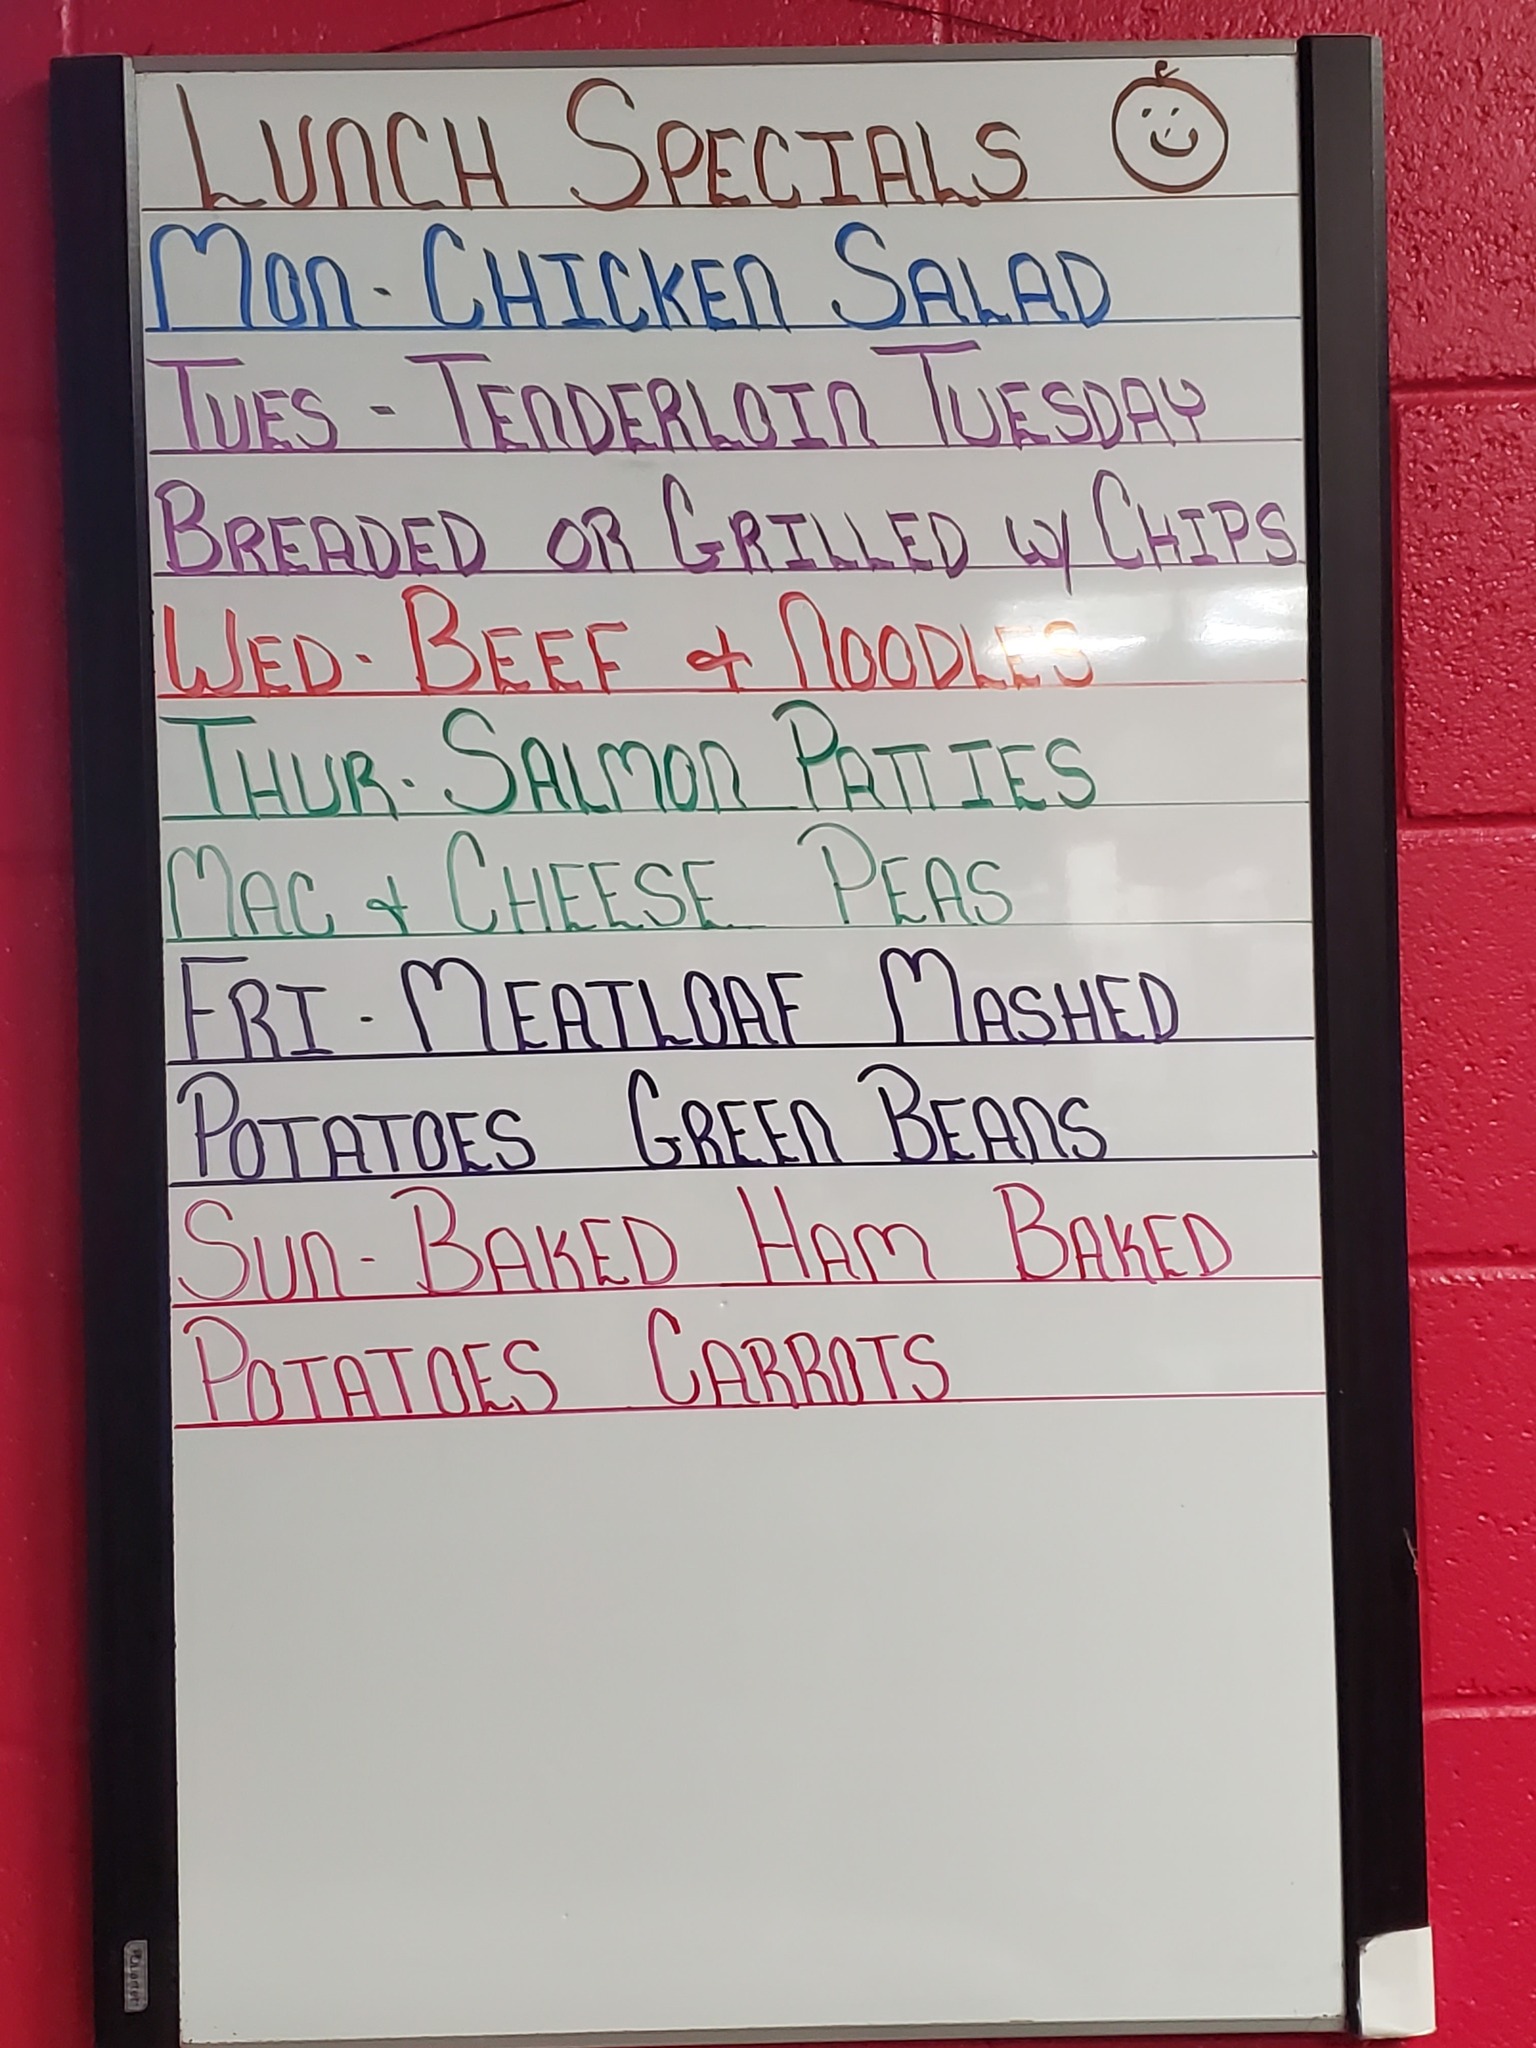 LUNCH SPECIALS
MON- CHICKEN SALAD
TUES - TENDERLOIN TUESDAY
BREADED OR GRILLED W/ CHIPS
WED- BEEF & NOODLES
THUR- SALMON PATTIES
MAC & CHEESE PEAS
FRI - MEATLOAF MASHED
POTATOES GREEN BEANS
SUN- BAKED HAM BAKED
POTATOES CARROTS
Quartet